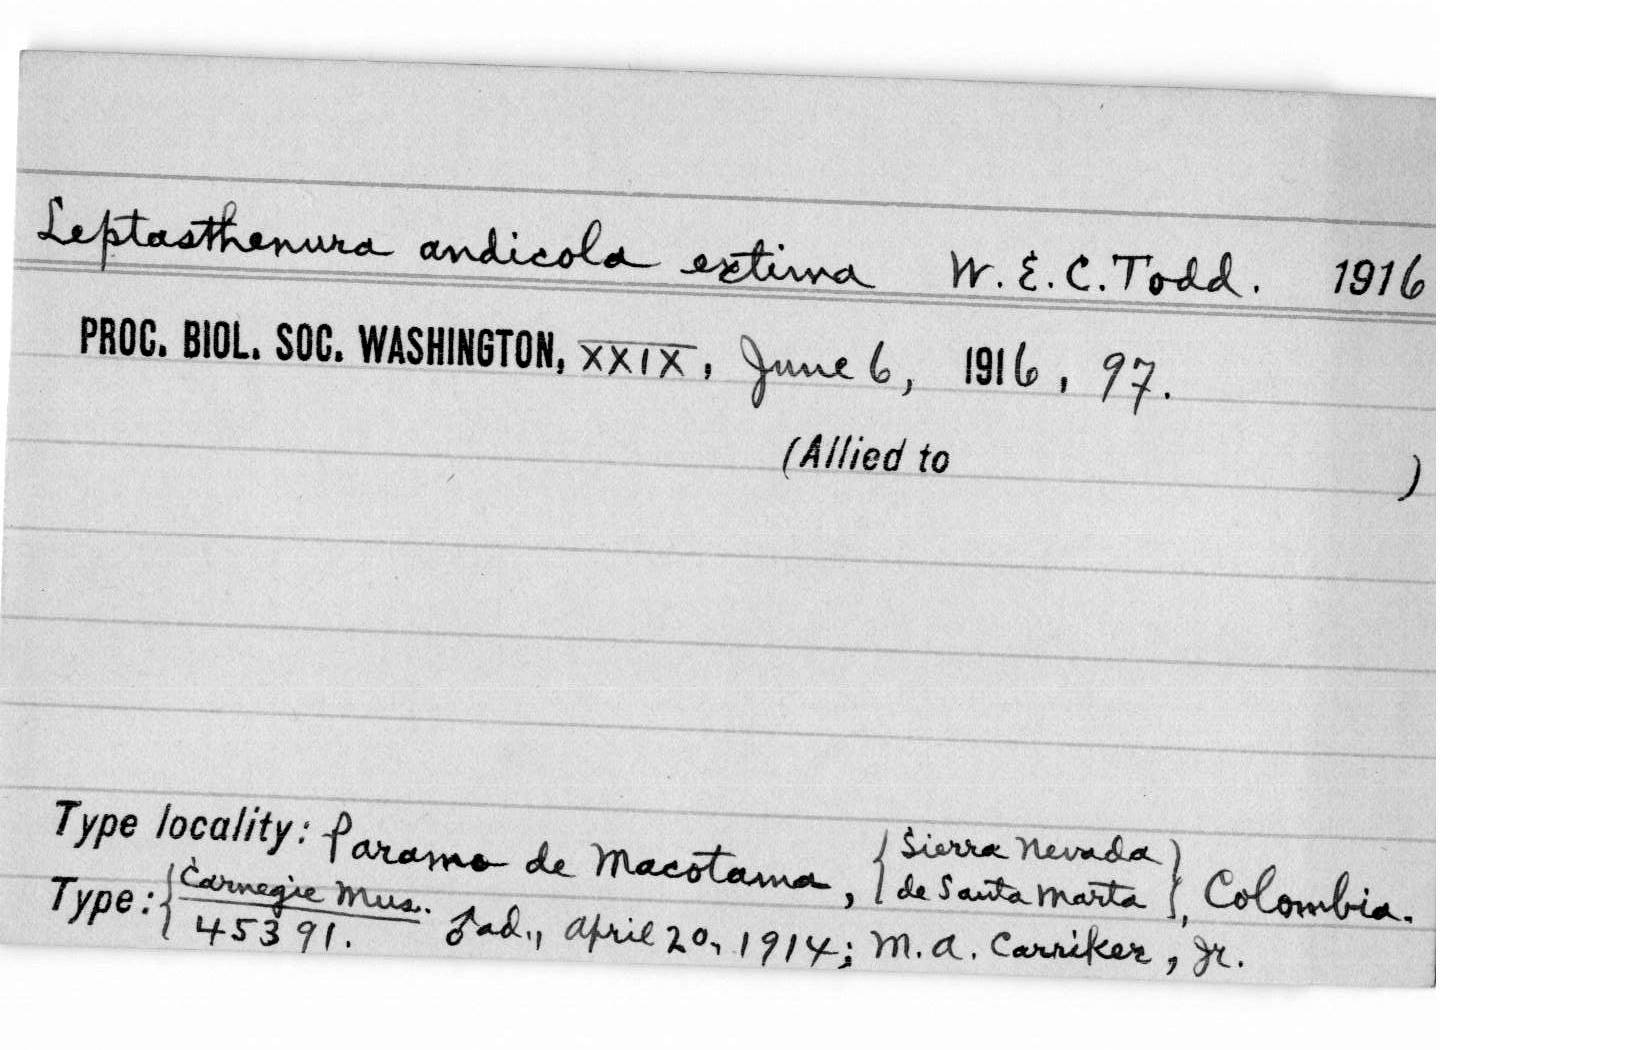 Leptasthenura andicola extima W. E. C. Todd. 1916
PROC. BIOL. SOC. WASHINGTON, XXIX, June 6, 1916, 97.
(Allied to )
Type locality: Paramo de Macotama, { Sierra Nevada de Santa Marta }, Colombia.
Type: { Carnegie Mus. 45391. ♂ ad., April 20, 1914; M. A. Carriker, Jr.